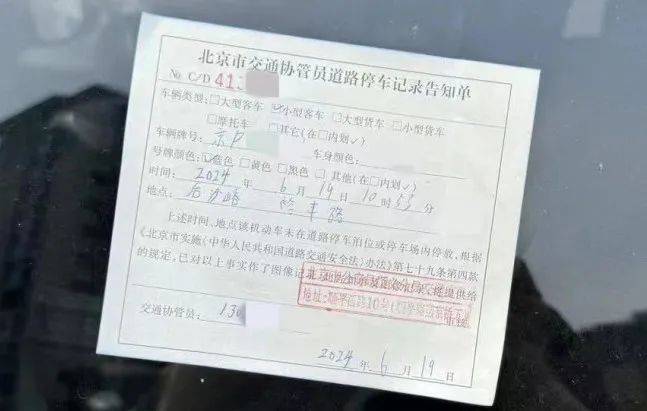 北京市交通协管员道路停车记录告知单
No C/D 413
车辆类型:□大型客车 ☑小型客车 □大型货车 □小型货车
□摩托车 □其它(在□内划√)
车辆牌号: 京P 车身颜色:
号牌颜色:☑蓝色 □黄色 □黑色 □其他(在□内划√)
时间: 2024 年 6 月 19 日 10 时 53 分
地点: 路 路
上述时间、地点该机动车未在道路停车泊位或停车场内停放,根据
《北京市实施〈中华人民共和国道路交通安全法〉办法》第七十九条第四款
的规定,已对以上事实作了图像记 提供给
地址: 10号
交通协管员: 130
2024 年 6 月 19 日